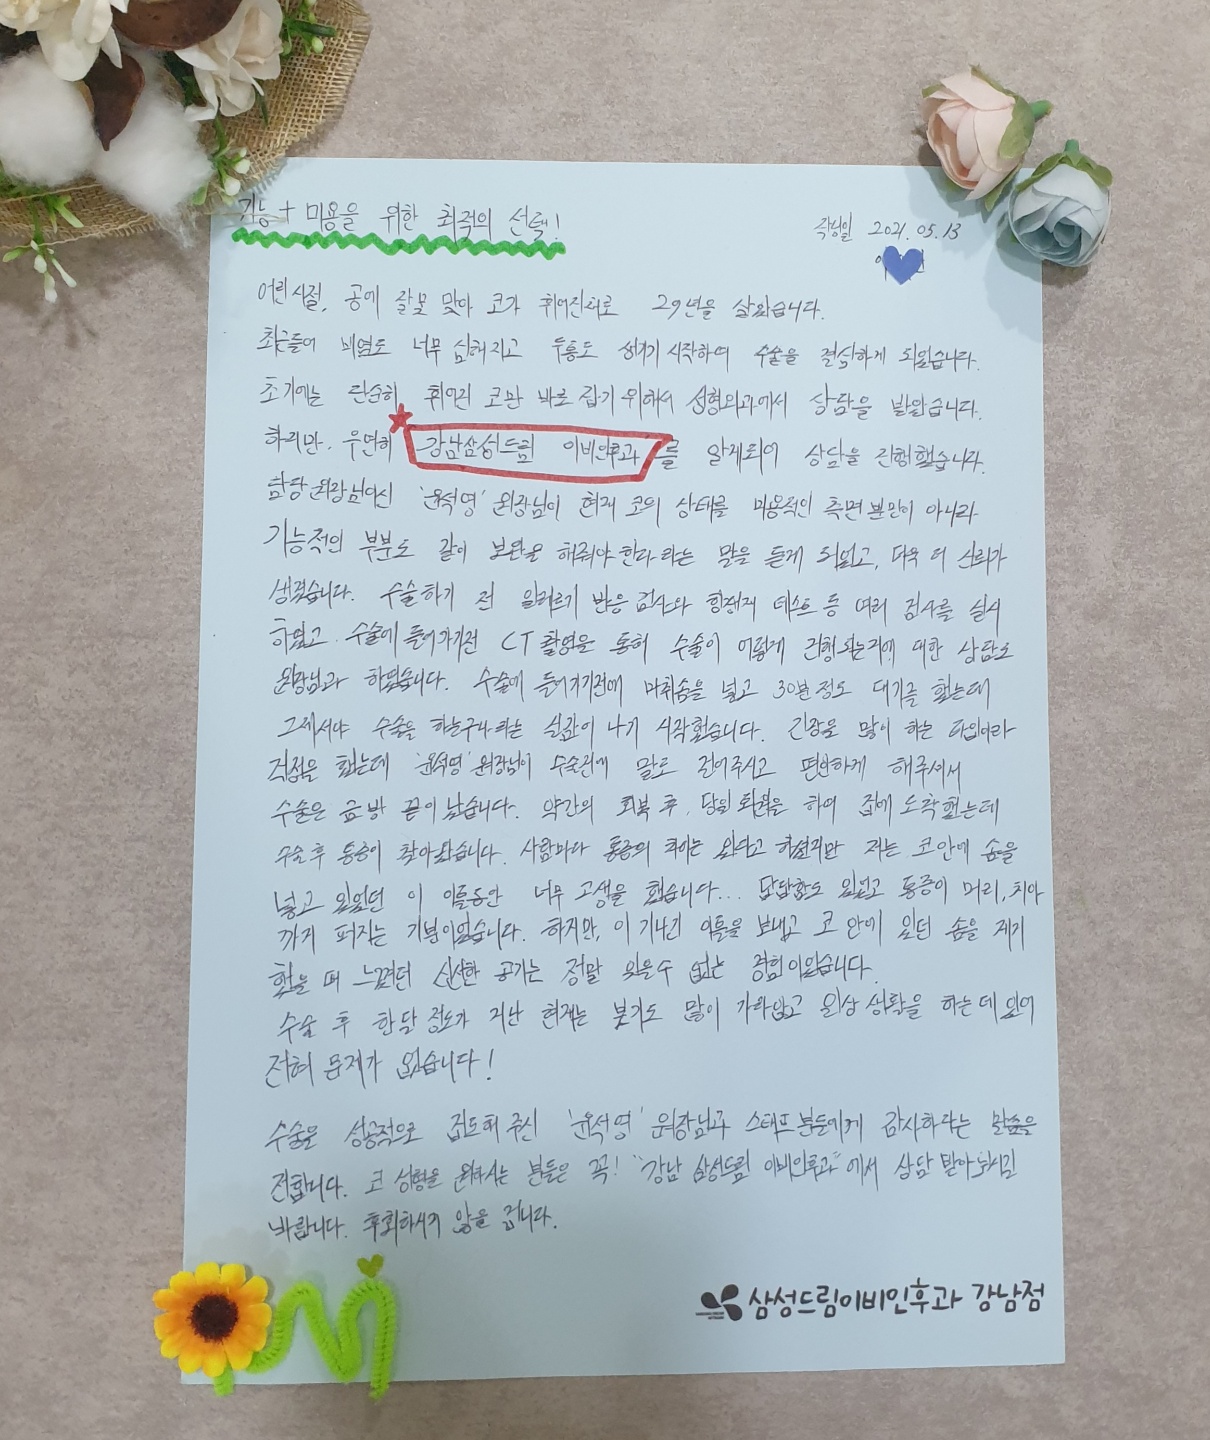 기능 + 미용을 위한 최적의 선택!
작성일 2021.05.13
어린시절, 공에 잘못 맞아 코가 휘어진채로 29년을 살았습니다.
최근들어 비염도 너무 심해지고 두통도 생기기 시작하여 수술을 절실하게 되었습니다.
초기에는 단순히 휘어진 코만 바로 잡기 위해서 성형외과에서 상담을 받았습니다.
하지만, 우연히 강남삼성드림 이비인후과를 알게되어 상담을 진행했습니다.
담당 원장님이신 '윤석영' 원장님이 현재 코의 상태를 미용적인 측면 뿐만이 아니라
기능적인 부분도 같이 보완을 해줘야 한다 라는 말을 듣게 되었고, 더욱 더 신뢰가
생겼습니다. 수술하기 전 알레르기 반응 검사와 항생제 테스트 등 여러 검사를 실시
하였고 수술에 들어가기전 CT 촬영을 통해 수술이 어떻게 진행 되는지에 대한 상담도
원장님과 하였습니다. 수술에 들어가기전에 마취솜을 넣고 30분 정도 대기를 했는데
그제서야 수술을 하는구나 라는 실감이 나기 시작했습니다. 긴장을 많이 하는 타입이라
걱정을 했는데 '윤석영' 원장님이 수술전에 말도 걸어주시고 편안하게 해주셔서
수술은 금방 끝이 났습니다. 약간의 회복 후, 당일 퇴원을 하여 집에 도착했는데
수술 후 통증이 찾아왔습니다. 사람마다 통증의 차이는 있다고 하셨지만 저는 코안에 솜을
넣고 있었던 이 이틀동안 너무 고생을 했습니다... 답답함도 있었고 통증이 머리, 치아
까지 퍼지는 기분이었습니다. 하지만, 이 기나긴 이틀을 보내고 코 안에 있던 솜을 제거
했을 때 느꼈던 신선한 공기는 정말 잊을수 없는 경험이었습니다.
수술 후 한달 정도가 지난 현재는 붓기도 많이 가라앉고 일상 생활을 하는데 있어
전혀 문제가 없습니다!
수술을 성공적으로 집도해 주신 '윤석영' 원장님과 스태프 분들에게 감사하다는 말씀을
전합니다. 코 성형을 원하시는 분들은 꼭! "강남 삼성드림 이비인후과"에서 상담 받아보시길
바랍니다. 후회하시지 않을 겁니다.
삼성드림이비인후과 강남점